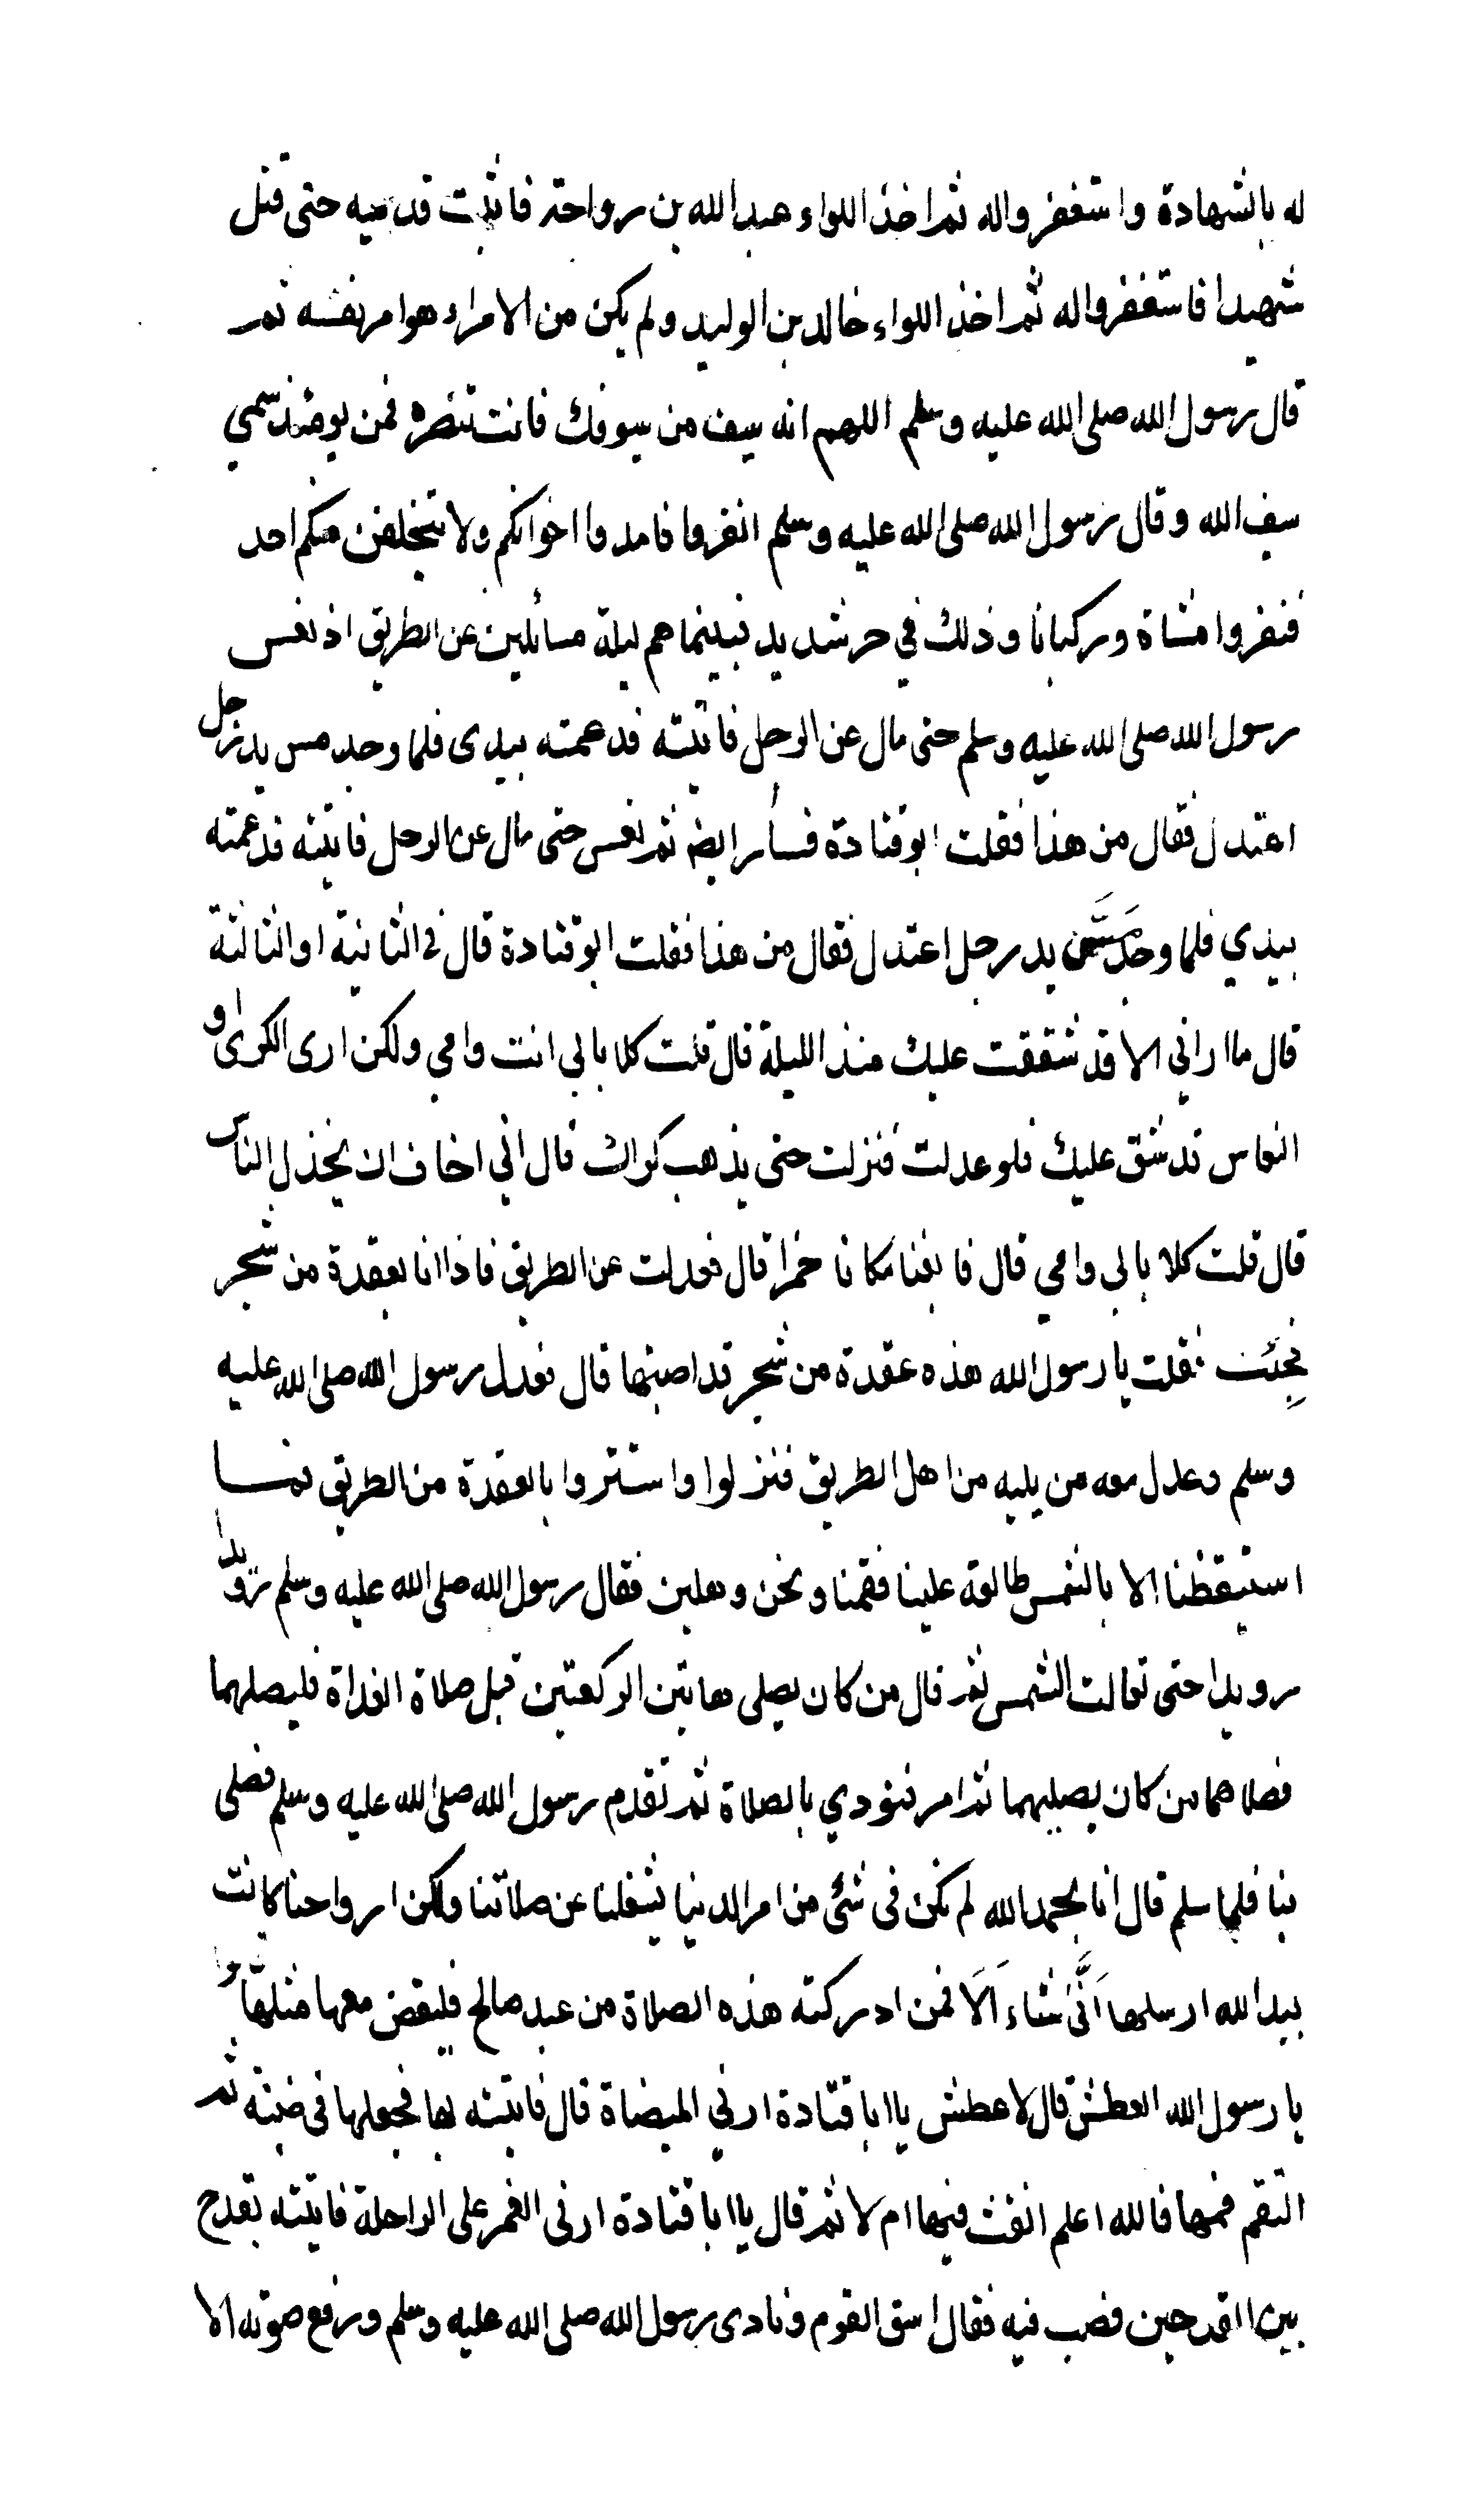 له بالشهادة واستغفروا له ثم اخذ اللواء عبدالله بن رواحة فاثبت قدميه حتى قتل
شهيدا فاستغفروا له ثم اخذ اللواء خالد بن الوليد ولم يكن من الامراء هو امر نفسه ثم
قال رسول الله صلى الله عليه وسلم اللهم انه سيف من سيوفك فانت تنصره فمن يومئذ سمي
سيف الله وقال رسول الله صلى الله عليه وسلم انفروا فامدوا اخوانكم ولا يتخلفن منكم احد
فنفروا مشاة وركبانا وذلك في حر شديد فبينما هم ليلة مسايلين عن الطريق اذ نعس
رسول الله صلى الله عليه وسلم حتى مال عن الرحل فاتيته فدعمته بيدى فلما وجد مس يد رجل
اعتدل فقال من هذا فقلت ابو قتادة فسار ايضا ثم نعس حتى مال عن الرحل فاتيته فدعمته
بيدي فلما وجد مَسَّ يد رجل اعتدل فقال من هذا فقلت ابو قتادة قال في الثانية او الثالثة
قال ما اراني الا قد شققت عليك منذ الليلة قال قلت كلا بابي انت وامي ولكن ارى الكرى او
النعاس قد شق عليك فلو عدلت فنزلت حتى يذهب كراك قال اني اخاف ان يخذل الناس
قال قلت كلا بابي وامي قال فابغنا مكانا خمرا قال فعدلت عن الطريق فاذا انا بعقدة من شجر
فجِئت فقلت يا رسول الله هذه عقدة من شجر قد اصبتها قال فعدل رسول الله صلى الله عليه
وسلم وعدل معه من يليه من اهل الطريق فنزلوا واستتروا بالعقدة من الطريق فما
استيقظنا الا بالشمس طالعة علينا فقمنا ونحن وهلين فقال رسول الله صلى الله عليه وسلم رويدا
رويدا حتى تعالت الشمس ثم قال من كان يصلى هاتين الركعتين قبل صلاة الغداة فليصلهما
فصلاهما من كان يصليهما ثم امر فنودي بالصلاة ثم تقدم رسول الله صلى الله عليه وسلم فصلى
بنا فلما سلم قال انا بحمد الله لم نكن فى شئ من امر الدنيا يشغلنا عن صلاتنا ولكن ارواحنا كانت
بيد الله ارسلها اَنَّى شاء اَلَا فمن ادركته هذه الصلاة من عبد صالح فليقض معها مثلها قالوا
يا رسول الله العطش قال لا عطش يا ابا قتادة ارني الميضاة قال فاتيته بها فجعلها فى ضبنه ثم
التقم فمها فالله اعلم انفث فيها ام لا ثم قال يا ابا قتادة ارنى الغمر على الراحلة فاتيته بقدح
بين القدحين فصب فيه فقال اسق القوم ونادى رسول الله صلى الله عليه وسلم ورفع صوته الا